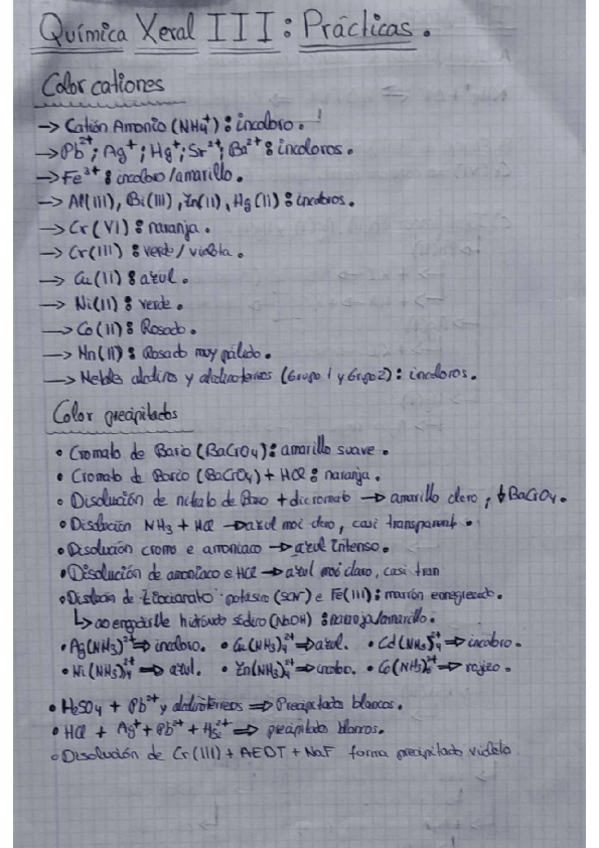 Química Xeral III: Prácticas.
Color cationes
→ Catión Amonio (NH4+): incoloro.
→ Pb2+; Ag+; Hg+; Sr2+; Ba2+: incoloros.
→ Fe3+: incoloro/amarillo.
→ Al(III), Bi(III), Zn(II), Hg(II): incoloros.
→ Cr(VI): naranja.
→ Cr(III): verde/violeta.
→ Cu(II): azul.
→ Ni(II): verde.
→ Co(II): Rosado.
→ Mn(II): Rosado muy pálido.
→ Metales alcalinos y alcalinoterreos (Grupo 1 y Grupo 2): incoloros.
Color precipitados
• Cromato de Bario (BaCrO4): amarillo suave.
• Cromato de Barico (BaCrO4) + HCl: naranja.
• Disolución de nitrato de Bario + dicromato → amarillo claro, ↓BaCrO4.
• Disolución NH3 + HCl → azul moi claro, casi transparent.
• Disolución cromo e amoniaco → azul intenso.
• Disolución de amoniaco e HCl → azul moi claro, casi tran
• Disolución de tiocianato potásico (SCN-) e Fe(III): marrón enegrecado.
↳ ao engadirlle hidróxido sódico (NaOH): naranja/amarillo.
• Ag(NH3)2+ ⇒ incoloro. • Cu(NH3)4 2+ ⇒ azul. • Cd(NH3)4 2+ ⇒ incoloro.
• Ni(NH3)4 2+ ⇒ azul. • Zn(NH3)4 2+ ⇒ incoloro. • Co(NH3)6 2+ ⇒ rojizo.
• H2SO4 + Pb2+ y alcalinoterreos ⇒ Precipitados blancos.
• HCl + Ag+ + Pb2+ + Hg2 2+ ⇒ precipitado blancos.
• Disolución de Cr(III) + AEDT + NaF forma precipitado violeta